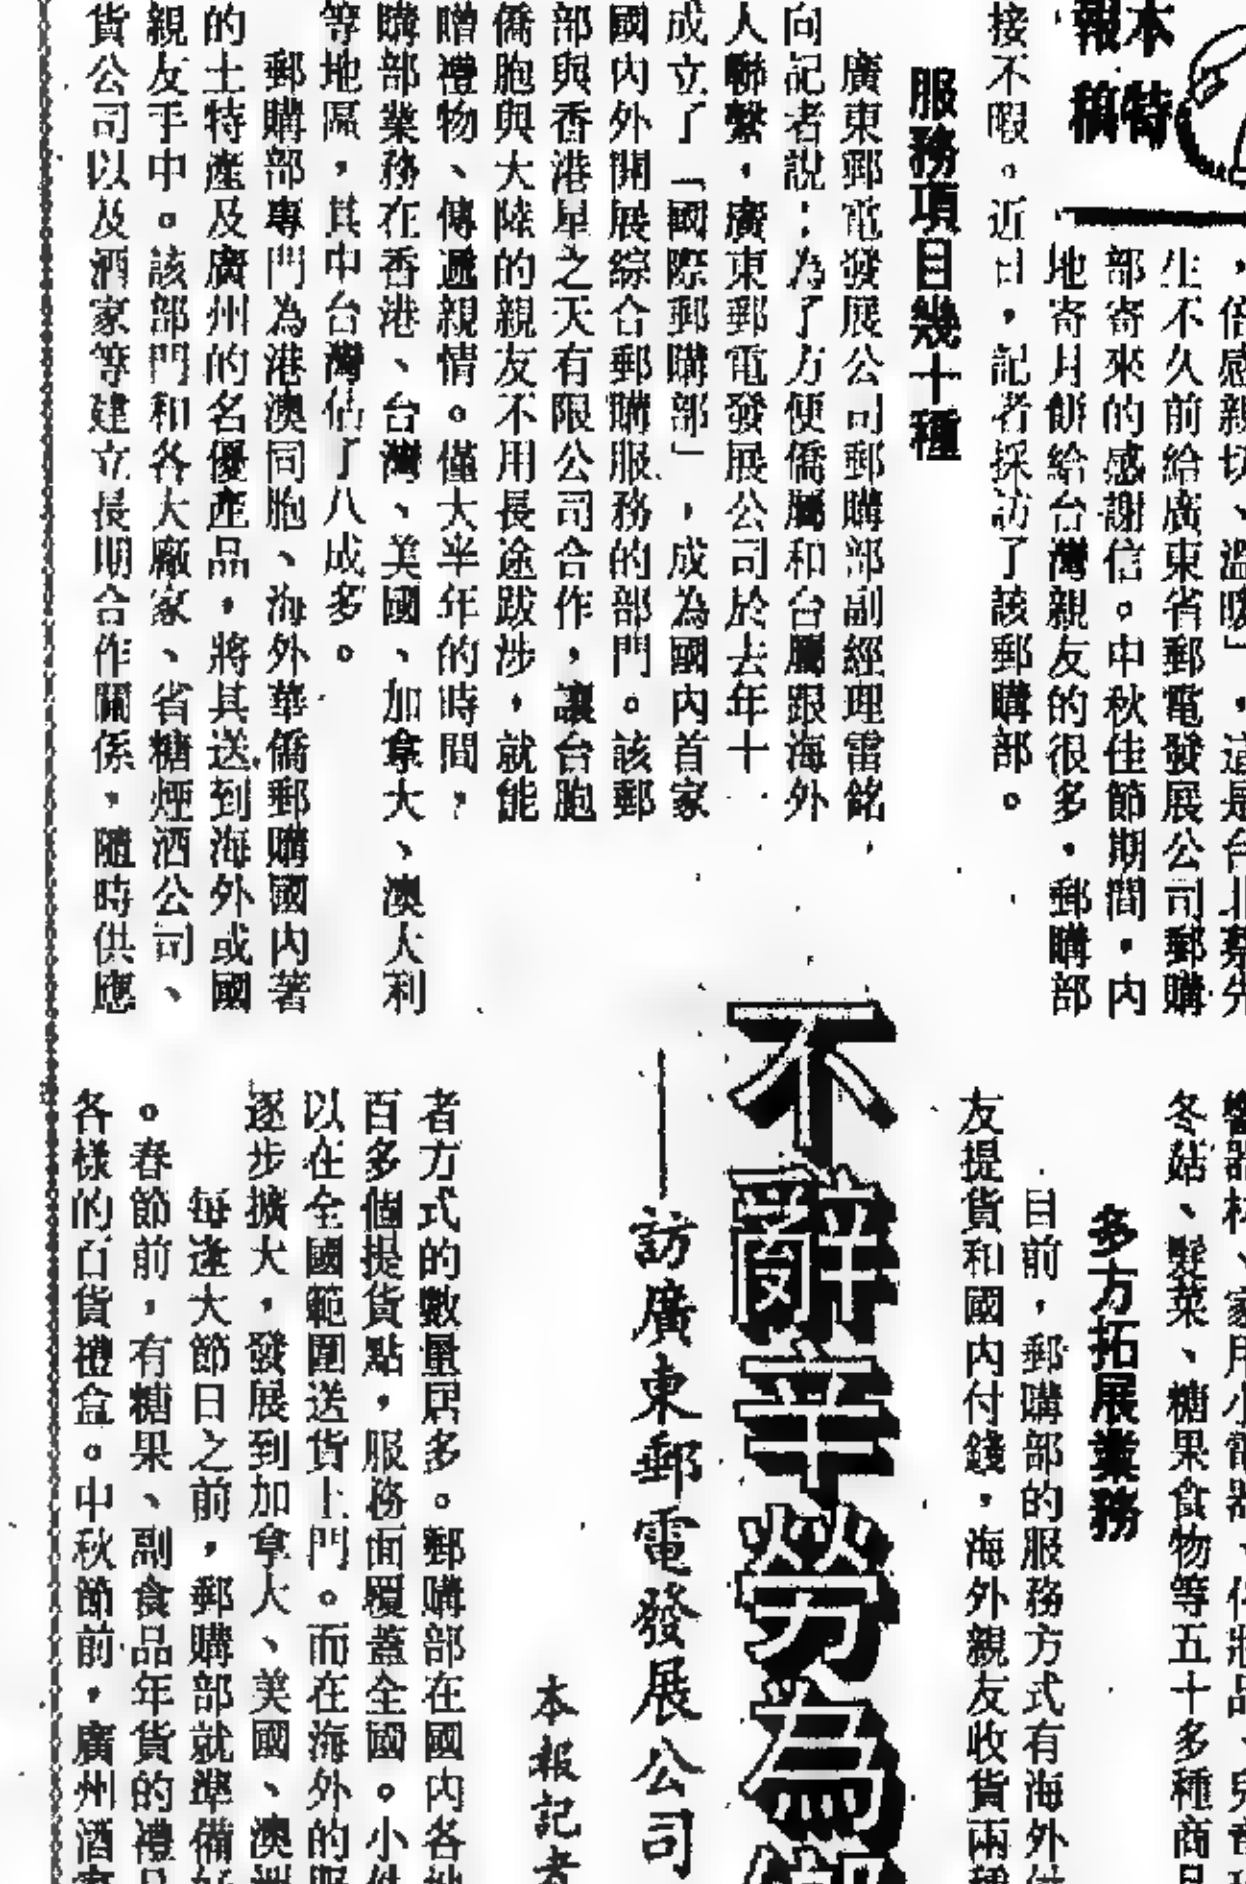 本報特稿
，倍感親切、溫暖」，這是台北蔡先
生不久前給廣東省郵電發展公司郵購
部寄來的感謝信。中秋佳節期間，內
地寄月餅給台灣親友的很多，郵購部
接不暇。近日，記者採訪了該郵購部。
服務項目幾十種
廣東郵電發展公司郵購部副經理雷銘
向記者說：為了方便僑屬和台屬跟海外
人聯繫，廣東郵電發展公司於去年十
成立了「國際郵購部」，成為國內首家
國內外開展綜合郵購服務的部門。該郵
部與香港星之天有限公司合作，讓台胞
僑胞與大陸的親友不用長途跋涉，就能
贈禮物、傳遞親情。僅大半年的時間，
購部業務在香港、台灣、美國、加拿大、澳大利
等地區，其中台灣佔了八成多。
郵購部專門為港澳同胞、海外華僑郵購國內著
的土特產及廣州的名優產品，將其送到海外或國
親友手中。該部門和各大廠家、省糖煙酒公司、
貨公司以及酒家等建立長期合作關係，隨時供應
響器材、家用小電器、化妝品、兒童
冬菇、髮菜、糖果食物等五十多種商品
多方拓展業務
目前，郵購部的服務方式有海外
友提貨和國內付錢，海外親友收貨兩種
不辭辛勞為
——訪廣東郵電發展公司
本報記者
者方式的數量居多。郵購部在國內各地
百多個提貨點，服務面覆蓋全國。小件
以在全國範圍送貨上門。而在海外的服
逐步擴大，發展到加拿大、美國、澳洲
每逢大節日之前，郵購部就準備好
。春節前，有糖果、副食品年貨的禮品
各樣的百貨禮盒。中秋節前，廣州酒家